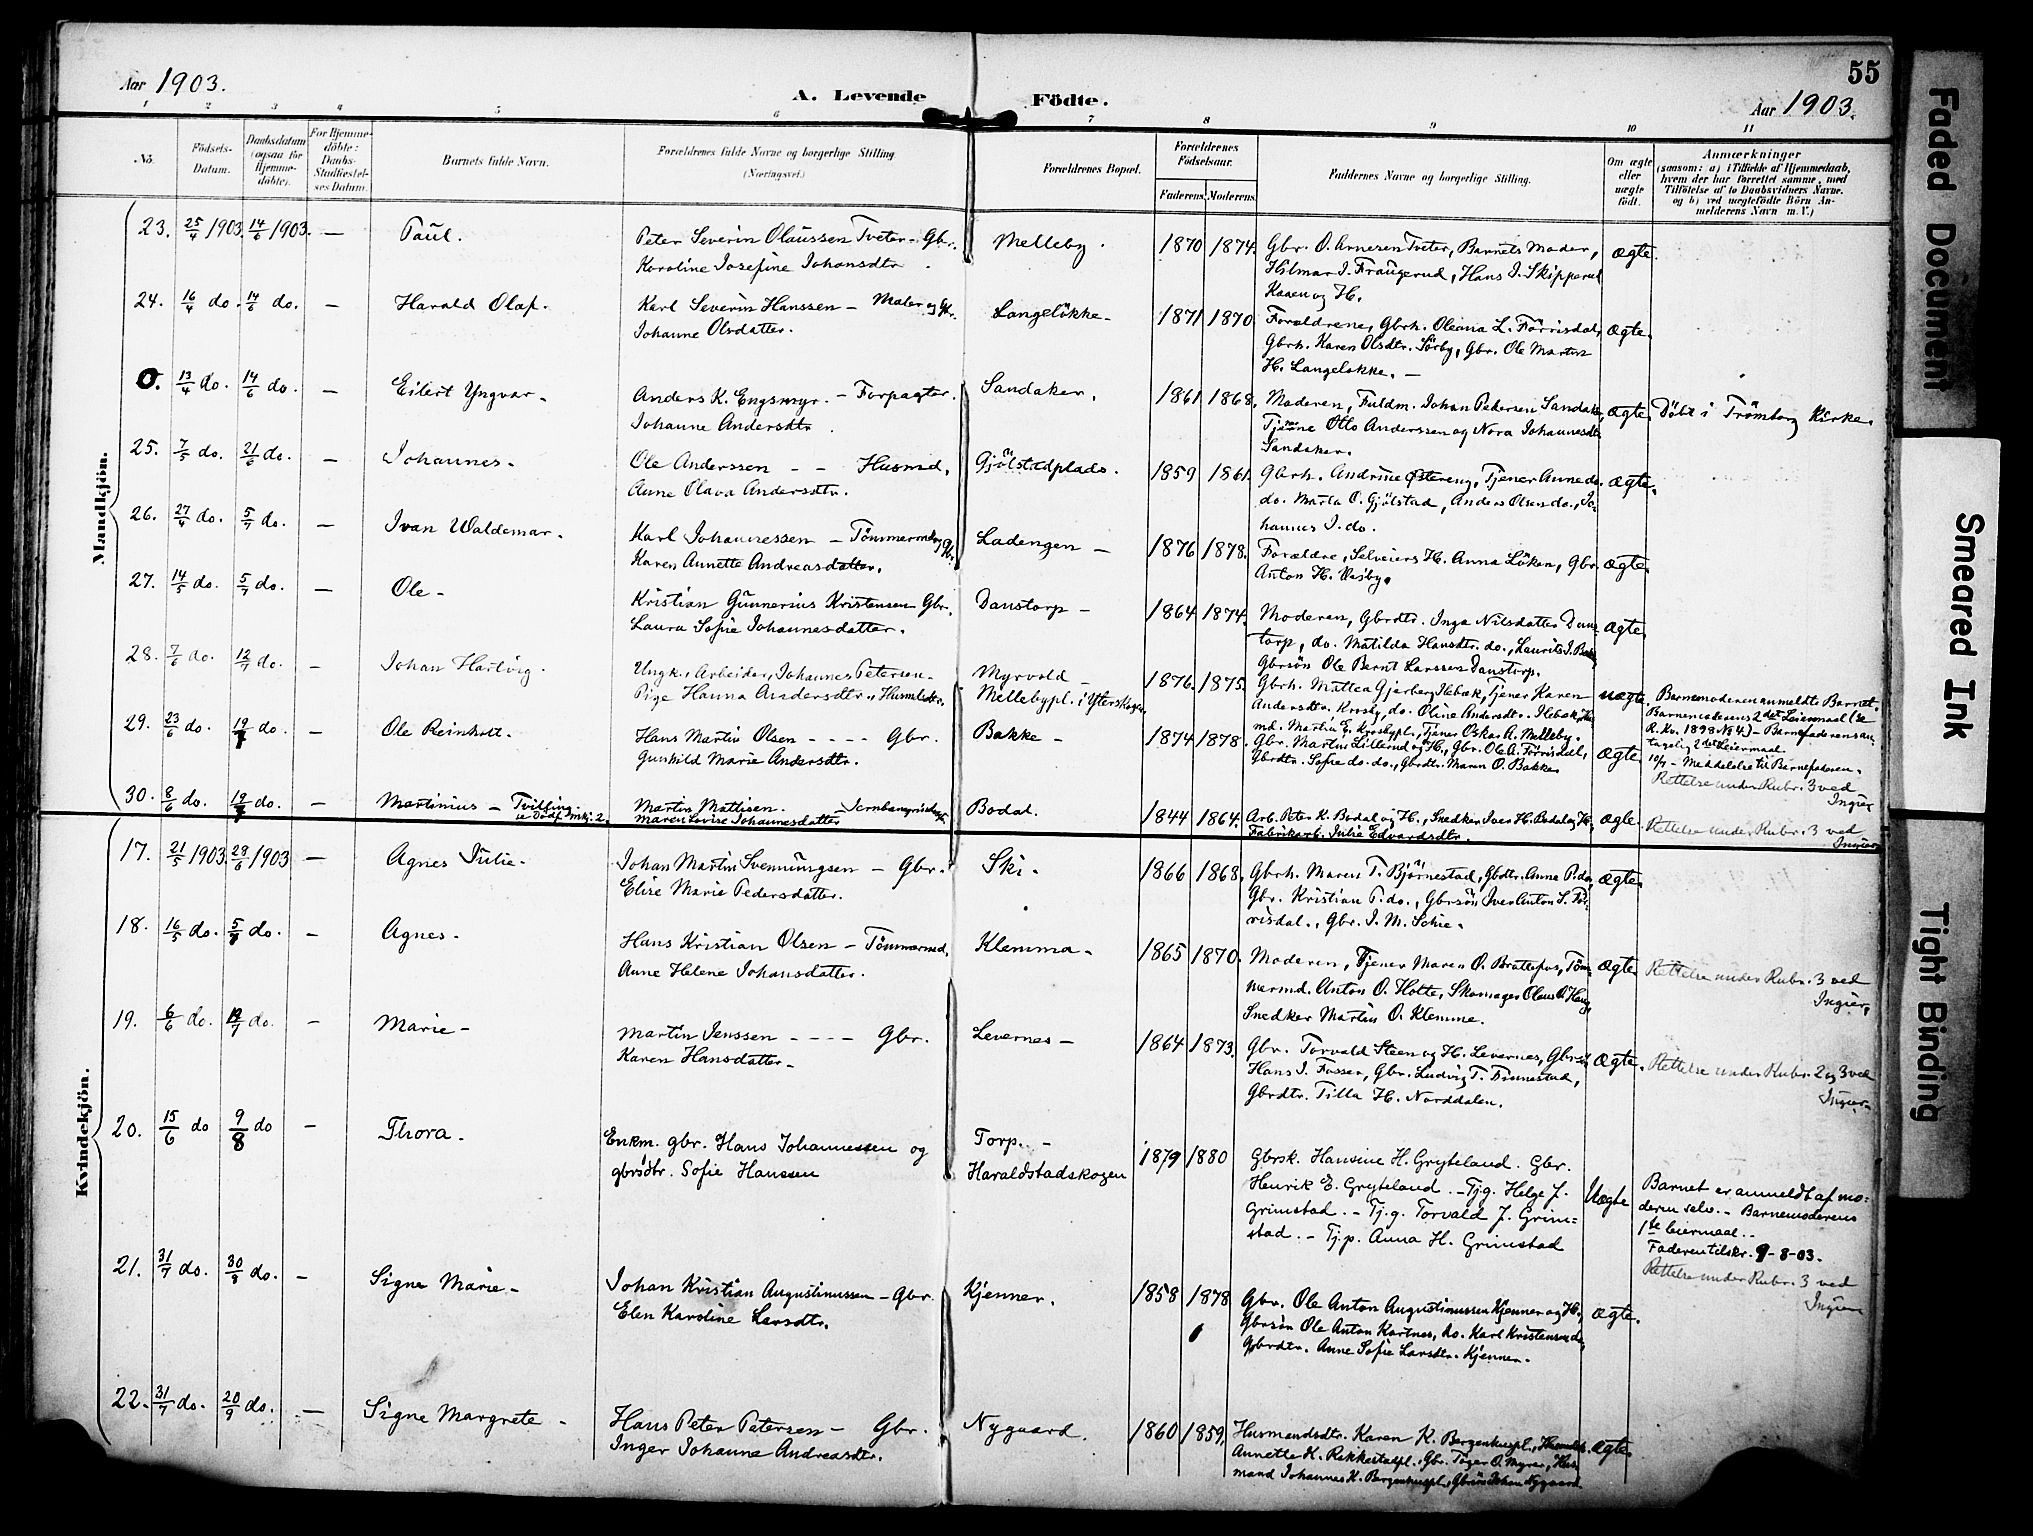 Aar 1903.
A. Levende Födte.
55
Aar 1903.
1 2 3 4 5 6 7 8 9 10 11
No.
Födsels-
Datum.
Daabsdatum
(ogsaa for
Hjemme-
döbte).
For Hjemme-
döbte:
Daabs-
Stadfæstel-
ses Datum.
Barnets fulde Navn.
Forældrenes fulde Navne og borgerlige Stilling
(Næringsvei.)
Forældrenes Bopæl.
Forældrenes
Födselsaar.
Faderens. Moderens.
Faddernes Navne og borgerlige Stilling.
Om ægte
eller
uægte
født.
Anmærkninger
(saasom: a) i Tilfælde af Hjemmedaab,
hvem der har forrettet samme, med
Tilföielse af to Daabsvidners Navne.
og b) ved uægtefödte Börn An-
melderens Navn m. V.)
Mandkjön.
23. 25/4 1903. 14/6 1903. — Paul.
Peter Severin Olaussen Tveter - Gbr.
Karoline Josefine Johansdtr.
Melleby.
1870 1874.
Gbr. O. Arnesen Tveter, Barnets Moder,
Hilmar J. Fraugerud, Hans J. Skipperud
Kaaen og H.
ægte.
24. 16/4 do. 14/6 do. — Harald Olaf.
Karl Severin Hanssen — Maler og Gbr.
Johanne Olsdatter.
Langelökke —
1871 1870
Forældrene, Gbrh. Oleana L. Förrisdal,
Gbrh. Karen Olsdtr. Sörby, Gbr. Ole Martin
H. Langeløkke. —
ægte.
0. 13/4 do. 14/6 do. — Eilert Yngvar —
Anders K. Engsmyr. — Forpagter.
Johanne Andersdtr.
Sandaker.
1861 1868.
Moderen, Fuldm. Johan Pedersen Sandaker,
Tjene Otto Anderssen og Nora Johannesdtr.
Sandaker.
ægte.
Døbt i Trömborg Kirke.
25. 7/5 do. 21/6 do. — Johannes —
Ole Anderssen — — Husmd.
Anne Olava Andersdtr.
Gjølstadplads.
1859 1861.
Gbrh. Andrine Østereng, Tjener Anne do.
do. Marta O. Gjølstad, Anders Olsen do., Jo-
hannes J. do.
ægte.
26. 27/4 do. 5/7 do. — Ivan Waldemar —
Karl Johannessen — Tömmermd. og Gbr.
Karen Annette Andreasdatter.
Ladengen —
1876 1878.
Forældre, Selveiers H. Anna Löken, Gbr.
Anton H. Visby.
ægte.
27. 14/5 do. 5/7 do. — Ole —
Kristian Gunnerius Kristensen Gbr.
Laura Sofie Johannesdatter.
Danstorp —
1864 1874.
Moderen, Gbrdtr. Inga Nilsdatter Dans-
torp, do. Matilda Hansdtr. do., Laurits J. Bak
Gbrsön Ole Bernt Larssen Danstorp.
ægte.
28. 7/6 do. 12/7 do. — Johan Hartvig.
Ungk. Arbeider, Johannes Petersen —
Pige Hanna Andersdtr.
Myrvold —
Mellebypl. i Ytterskogen
1876. 1875.
Gbrh. Mattea Gjerberg Ilebæk, Tjener Karen
Andersdtr. Krosby, do. Oline Andersdtr. Ilebæk, Hus-
md. Martin E. Krosbypl., Tjener Oskar A. Melleby.
uægte.
Barnemoderen anmeldte Barnet.
Barnemoderens 2det Leiermaal (se
K. Kv. 1898 No 4) — Barnefaderens an-
tagelig 2det Leiermaal
10/7 — Meddelelse til Barnefaderen.
29. 23/6 do. 19/7 do. — Ole Reinholt.
Hans Martin Olsen — — — — Gbr.
Gunhild Marie Andersdtr.
Bakke —
1874 1878.
Gbr. Martin Lillerud og H., Gbr. Ole A. Förrisdal,
Gbrdtr. Sofie do. do., Gbrdtr. Maren O. Bakke
ægte.
Rettelse under Rubr. 3 ved
Ingier
30. 8/6 do. 19/7 do. — Martinius — Tvilling.
se Dödf. mkj. 2.
Martin Mattisen.
Maren Lovise Johannesdatter
Bodal.
1844 1864.
Arb. Peter K. Bodal og H., Snedker Iver H. Bodal og H.
Fabrikarb. Julie Edvardsdtr.
ægte.
Rettelse under Rubr. 3 ved
Ingier
Kvindekjön.
17. 21/5 1903. 28/6 1903 — Agnes Julie —
Johan Martin Svenningsen — Gbr.
Elise Marie Pedersdatter.
Ski —
1866 1868.
Gbrh. Maren T. Björnestad, Gbdtr. Anne P. do.
Gbr. Kristian P. do., Gbrsön Iver Anton S. För-
risdal., Gbr. J. M. Schie.
ægte.
18. 16/5 do. 5/7 do. — Agnes —
Hans Kristian Olsen — Tömmermd.
Anne Helene Johansdatter.
Klemma —
1865 1870.
Moderen, Tjener Maren O. Brattefos, Töm-
mermd. Anton O. Holte, Skomager Olaus O. Haug,
Snedker Martin O. Klemme.
ægte
Rettelse under Rubr. 3 ved
Ingier,
19. 6/6 do. 12/7 do. — Marie —
Martin Jenssen — — — — Gbr.
Karen Hansdatter —
Levernes —
1864 1873.
Gbr. Torvald Steen og H. Levernes, Gbrsö.
Hans J. Fosser, Gbr. Ludvig T. Finnestad,
Gbrdtr. Tilla H. Norddalen.
ægte.
Rettelse under Rubr. 2 og 3 ved
Ingier —
20. 15/6 do 9/8 do — Thora —
Enkm. gbr. Hans Johannessen og
gbrsdtr. Sofie Hanssen
Torp. —
Haraldstadskogen
1879 1880
Gbrsk. Hansine H. Gryteland. Gbr.
Henrik E. Gryteland. — Tj.g. Helge J.
Grimstad. — Tj.g. Torvald J. Grim=
stad. — Tj.p. Anna H. Grimstad
Uægte
Barnet er anmeldt af mo=
deren selv. — Barnemoderens
1ste leiermaal. —
Faderen tilskr. 9-8-03.
21. 31/7 do. 30/8 do. — Signe Marie —
Johan Kristian Augustinussen — Gbr.
Elen Karoline Larsdtr.
Kjenner.
1858 1878
Gbr. Ole Anton Augustinussen Kjenner og H.,
Gbrsön Ole Anton Kartnes, do. Karl Kristensen do.,
Gbrdtr. Anne Sofie Larsdtr. Kjenner.
ægte.
Rettelse under Rubr. 3 ved
Ingier
22. 31/7 do. 20/9 do. — Signe Margrete —
Hans Peter Petersen — Gbr.
Inger Johanne Andreasdtr.
Nygaard.
1860 1859.
Husmandsdtr. Karen K. Bergenhuspl.,
Annette K. Rakkestadpl., Gbr. Toger O. Myrer, Hus-
mand Johannes K. Bergenhuspl., Gbrsön Johan Nygaard
ægte.
Faded Document
Smeared Ink
Tight Binding